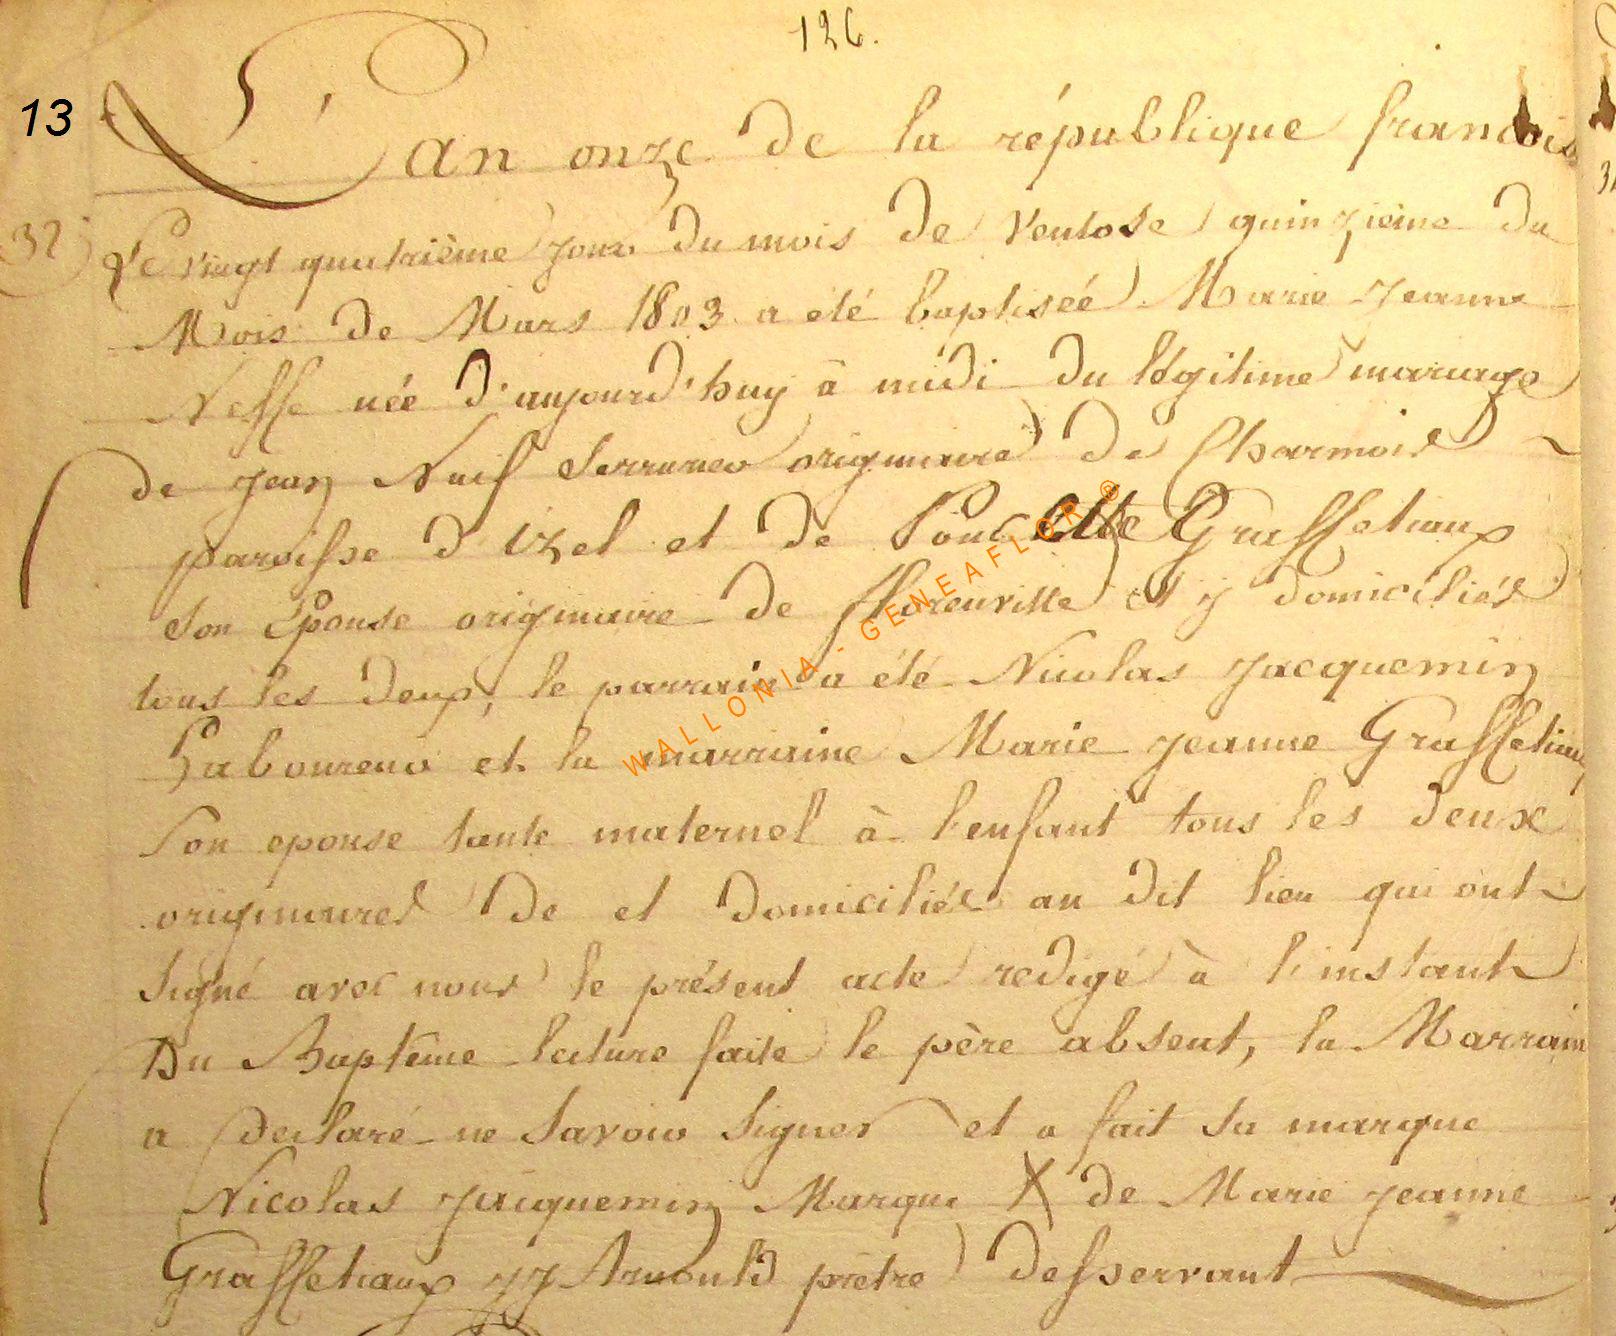 126.
13
L'an onze de la république francois
32
Le vingt quatrième jour du mois de Ventose quinzième du
Mois de Mars 1803 a été baptiséé Marie Jeanne
Neffe née d'aujourd'huy à midi du légitime mariage
de Jean Neuf Serrurier originaire de Charmois
paroisse d'izel et de Poncelette Grassetiaux
son Epouse originaire de florenville et y domiciliés
tous les deux, le parrain a été Nicolas Jacquemin
Laboureur et la marraine Marie Jeanne Grassetiaux
Son epouse tante maternel à l'enfant tous les deux
originaires de et domiciliés au dit lieu qui ont
signé avec nous le présent acte redigé à l'instant
Du Baptême lecture faite le père absent, la Marrain
a declaré ne savoir signer et a fait sa marque
Nicolas Jacquemin Marque X de Marie Jeanne
Grassetiaux JJ Arnould prêtre desservant
WALLONIA - GENEAFLOR ®